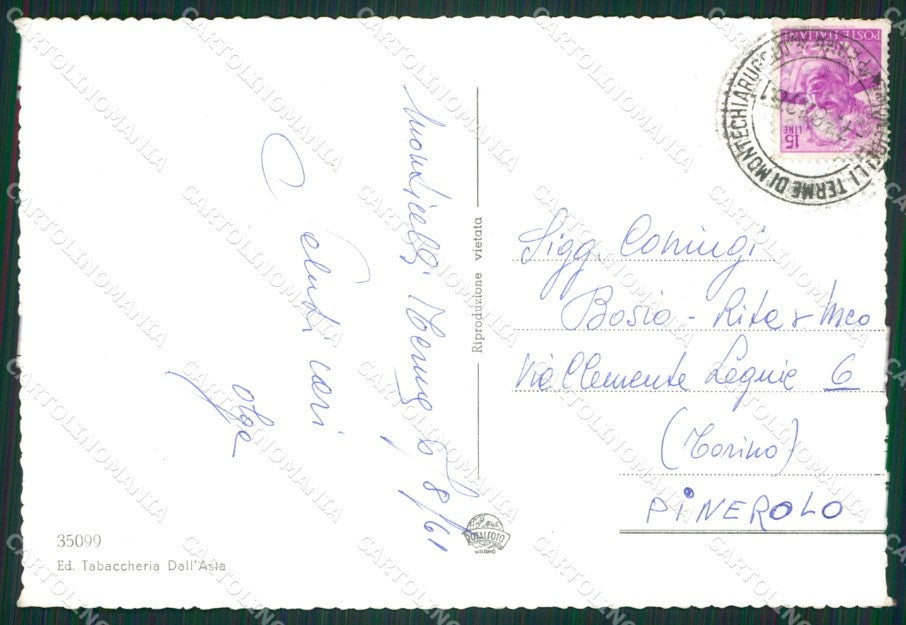 Monticelli Terme, 6/8/61
Saluti cari
Olga
Riproduzione vietata
35099
Ed. Tabaccheria Dall'Asta
ROTALFOTO
MILANO
POSTE ITALIANE
15
LIRE
TERME DI MONTECHIARUGOLO
Sigg. Coniugi
Bosio - Rita e Meo
Via Clemente Lequio 6
(Torino)
PINEROLO
CARTOLINOMANIA